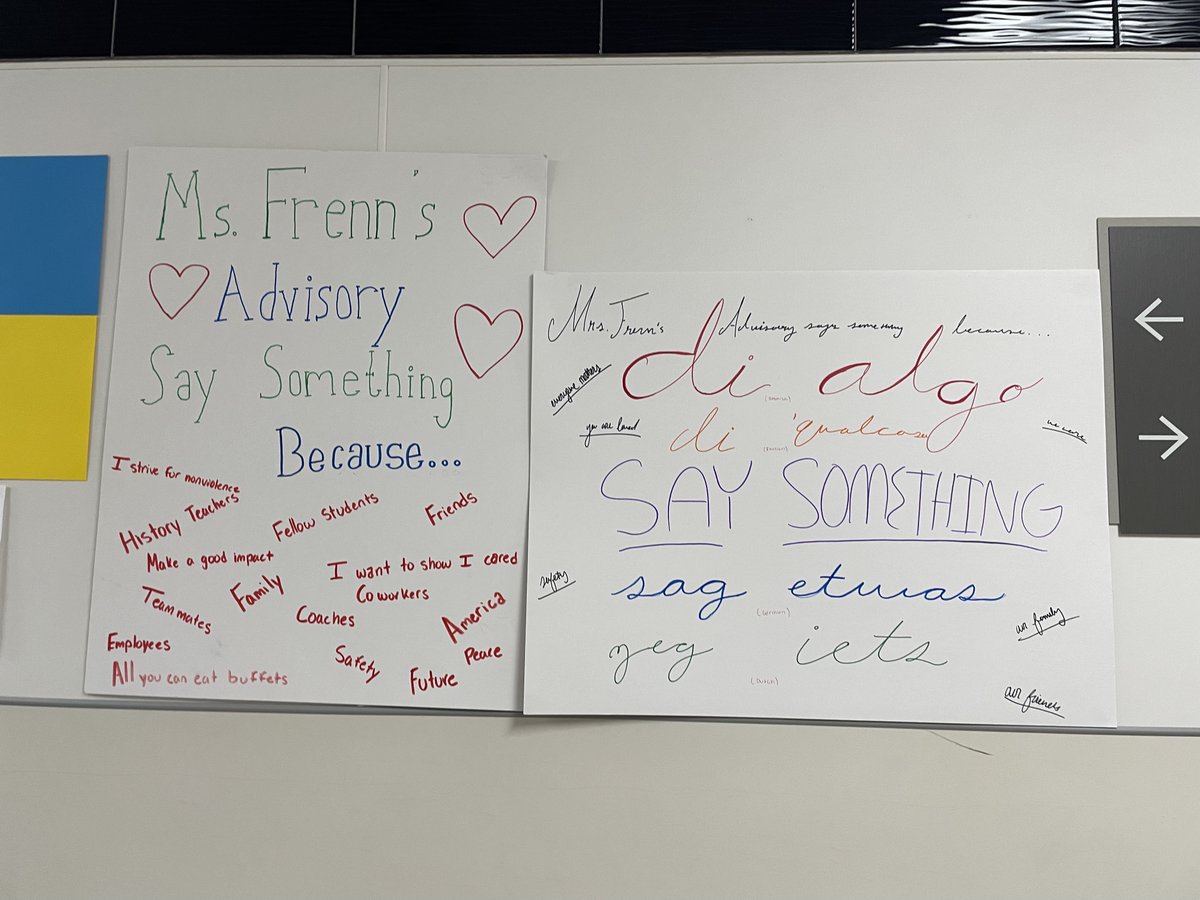 Ms. Frenn's
Advisory
Say Something
Because...
I strive for nonviolence
History Teachers
Fellow Students
Friends
Make a good impact
I want to show I cared
Family
Co workers
Team mates
Coaches
America
Employees
Safety
Peace
All you can eat buffets
Future
Mrs. Frenn's Advisory says something because...
everyone matters
di algo
(Spanish)
you are loved
di 'qualcosa
we care
SAY SOMETHING
safety
sag etwas
(German)
our family
zeg iets
(Dutch)
our friends